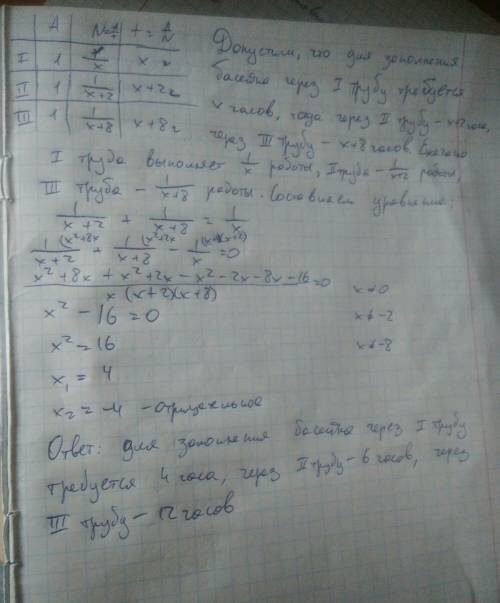 A N=A/t t=A/N
I 1 1/x x ч
II 1 1/(x+2) x+2ч
III 1 1/(x+8) x+8ч
Допустим, что для заполнения
басейна через I трубу требуется
x часов, тогда через II трубу – x+2 часа,
через III трубу – x+8 часов.
I труба выполняет 1/x работы, II труба – 1/(x+2) работы,
III труба – 1/(x+8) работы. Составляем уравнение:
1/(x+2) + 1/(x+8) = 1/x
1/(x+2) (x²+8x + 1/(x+8) (x²+2x – 1/x (x+8)(x+2) =0
(x²+8x + x²+2x – x² – 2x – 8x – 16)/(x(x+2)(x+8)) =0
x ≠ 0
x² – 16 = 0
x ≠ -2
x² = 16
x ≠ -8
x₁ = 4
x₂ = -4 – отрицательное
Ответ: для заполнения басейна через I трубу
требуется 4 часа, через II трубу – 6 часов, через
III трубу – 12 часов